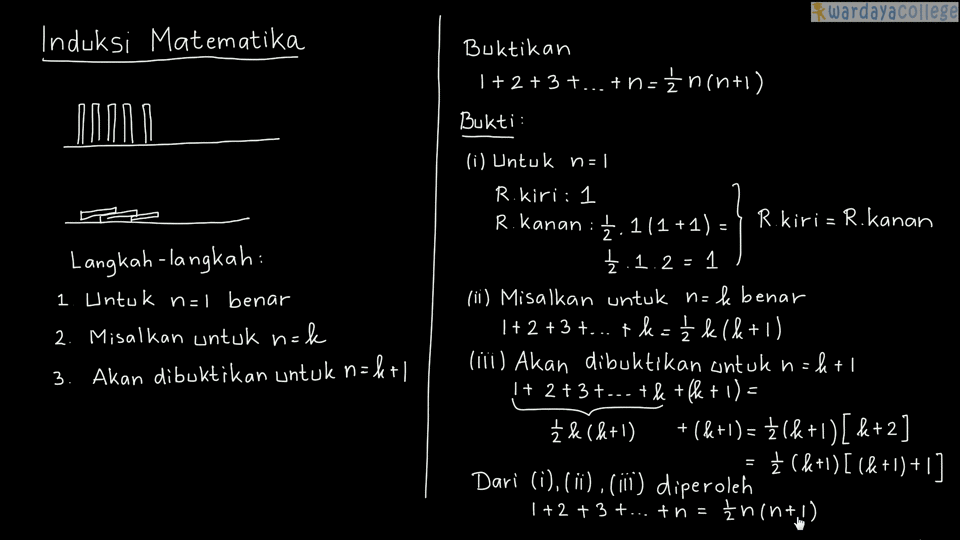 wardayacollege
Induksi Matematika
Langkah-langkah:
1 Untuk n=1 benar
2. Misalkan untuk n=k
3. Akan dibuktikan untuk n=k+1
Buktikan
1+2+3+...+n=½n(n+1)
Bukti:
(i) Untuk n=1
R.kiri: 1
R.kanan: ½.1(1+1)=
½.1.2=1
R.kiri=R.kanan
(ii) Misalkan untuk n=k benar
1+2+3+...+k=½k(k+1)
(iii) Akan dibuktikan untuk n=k+1
1+2+3+...+k+(k+1)=
½k(k+1) +(k+1)=½(k+1)[k+2]
=½(k+1)[(k+1)+1]
Dari (i),(ii),(iii) diperoleh
1+2+3+...+n=½n(n+1)